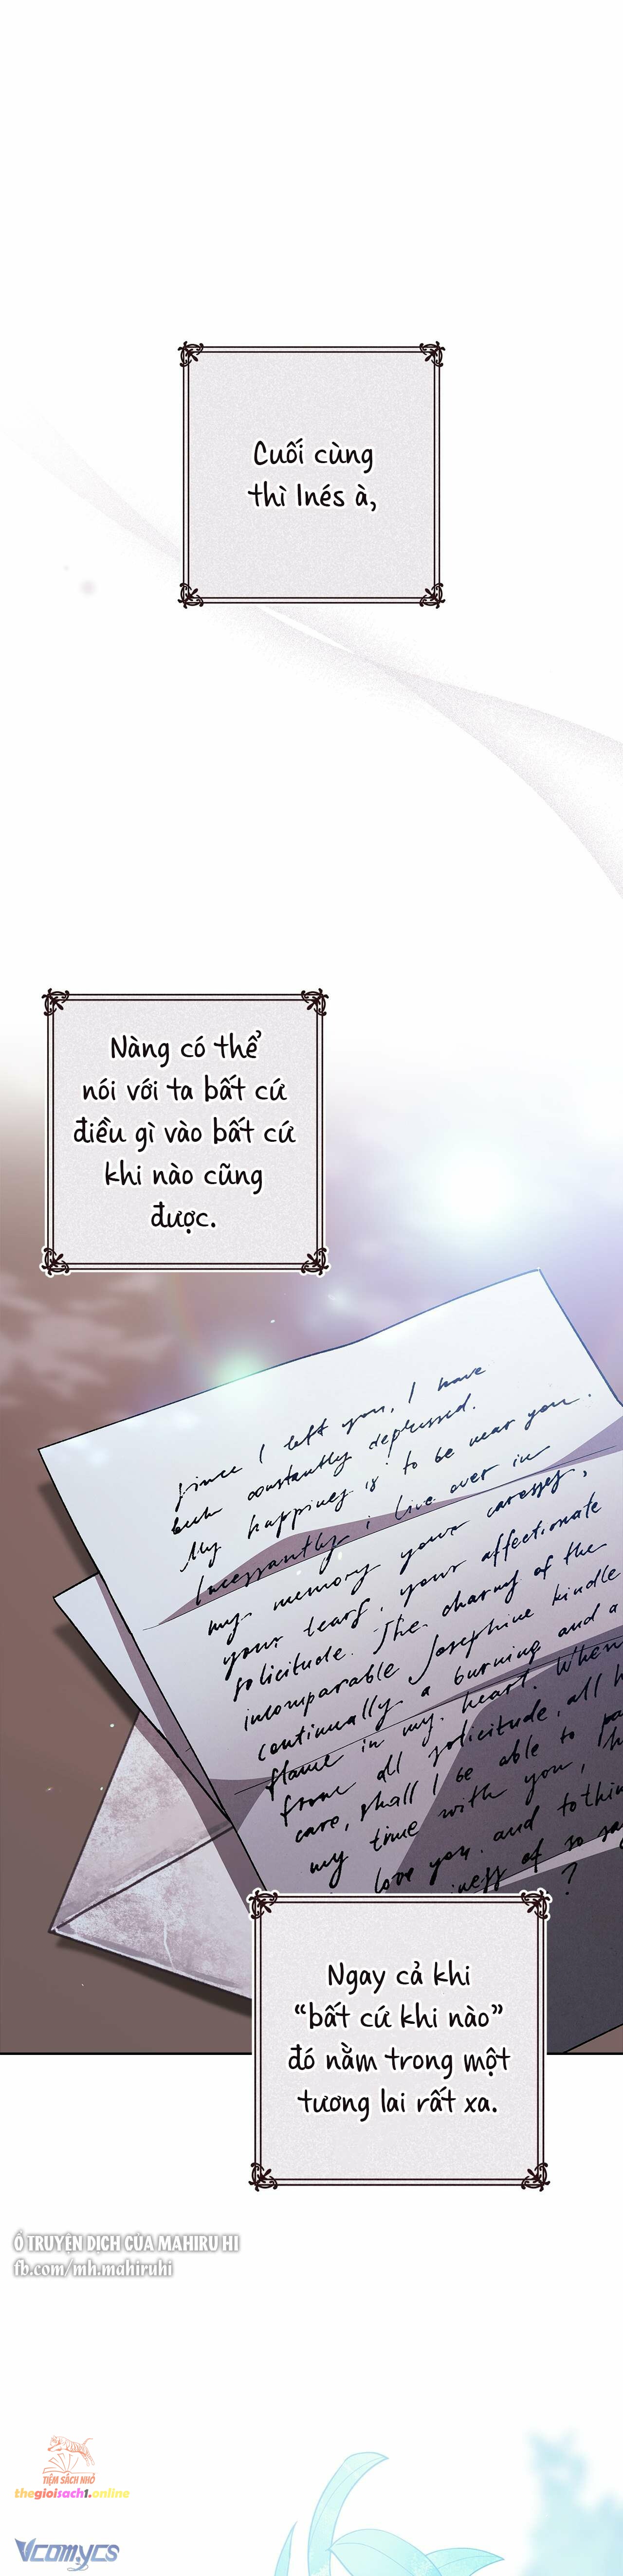 Cuối cùng
thì Inés à,
Nàng có thể
nói với ta bất cứ
điều gì vào bất cứ
khi nào cũng
được.
since I left you, I have
been constantly depressed.
My happiness is to be near you.
Incessantly i live over in
my memory your caresses,
your tears, your affectionate
solicitude. The charms of the
incomparable Josephine kindle
continually a burning and a
flame in my heart. When
from all solicitude, all h
care, shall I be able to pa
my time with you, h
love you. and to thin
iness of so sa
?
Ngay cả khi
“bất cứ khi nào”
đó nằm trong một
tương lai rất xa.
Ổ TRUYỆN DỊCH CỦA MAHIRU HI
fb.com/mh.mahiruhi
TIỆM SÁCH NHỎ
thegioisach1.online
Vcomycs